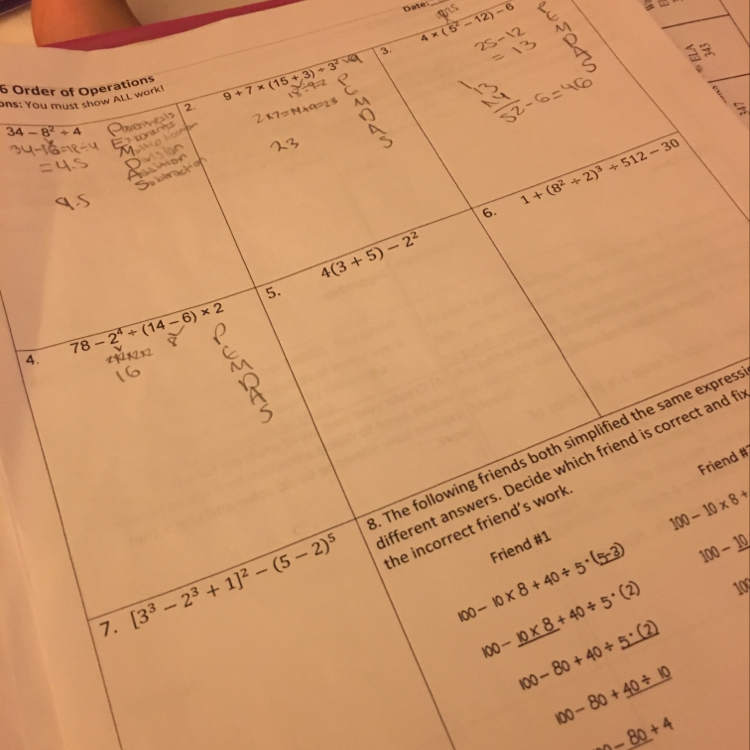 Date:
6 Order of Operations
ons: You must show ALL work!
34 – 8² ÷ 4
34-16=18÷4
= 4.5
4.5
Parenthesis
Exponents
Multiplication
Division
Addition
Subtraction
2.
9 + 7 × (15 + 3) ÷ 3²
18÷9=2
2×7=14+9=23
23
P
E
M
D
A
S
3.
4 × (5² – 12) – 6
25-12
= 13
13
×4
52-6=46
P
E
M
D
A
S
4.
78 – 2⁴ ÷ (14 – 6) × 2
2×2×2×2
8
16
P
E
M
D
A
S
5.
4(3 + 5) – 2²
6.
1 + (8² ÷ 2)³ ÷ 512 – 30
7. [3³ – 2³ + 1]² – (5 – 2)⁵
8. The following friends both simplified the same expressi
different answers. Decide which friend is correct and fix
the incorrect friend's work.
Friend #1
100 – 10 x 8 + 40 ÷ 5·(5-3)
100 – 10 x 8 + 40 ÷ 5·(2)
100 – 80 + 40 ÷ 5·(2)
100 – 80 + 40 ÷ 10
– 80 + 4
Friend #
100 – 10 x 8 +
100 – 10
100
ELA
343